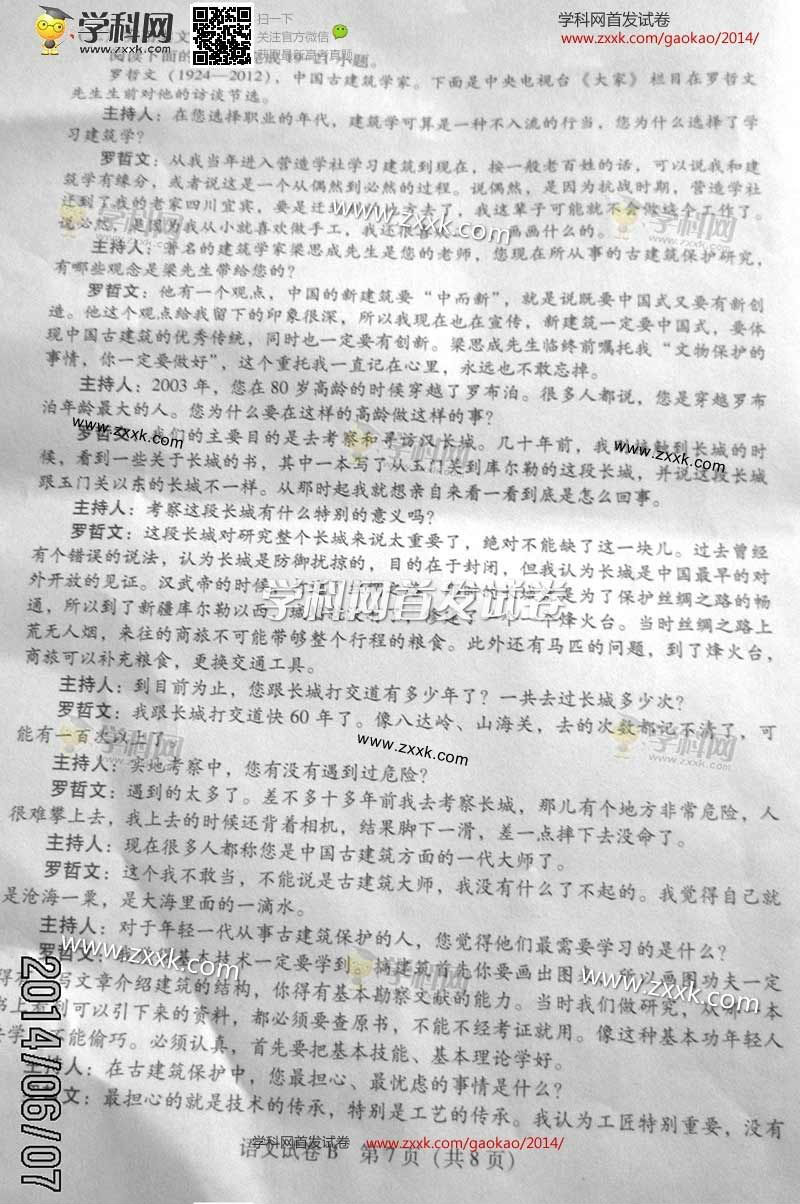 学科网
www.zxxk.com
扫一下
关注官方微信
获取最新高考真题
学科网首发试卷
www.zxxk.com/gaokao/2014/
阅读下面的 成19—21小题。
罗哲文（1924—2012），中国古建筑学家。下面是中央电视台《大家》栏目在罗哲文
先生生前对他的访谈节选。
主持人：在您选择职业的年代，建筑学可算是一种不入流的行当，您为什么选择了学
习建筑学？
罗哲文：从我当年进入营造学社学习建筑到现在，按一般老百姓的话，可以说我和建
筑学有缘分，或者说这是一个从偶然到必然的过程。说偶然，是因为抗战时期，营造学社
迁到了我的老家四川宜宾，要是迁 方去了，我这辈子可能就不会做这个工作了。
说必然，是因为我从小就喜欢做手工，我还很喜欢 画画什么的。
主持人：著名的建筑学家梁思成先生是您的老师，您现在所从事的古建筑保护研究，
有哪些观念是梁先生带给您的？
罗哲文：他有一个观点，中国的新建筑要“中而新”，就是说既要中国式又要有新创
造。他这个观点给我留下的印象很深，所以我现在也在宣传，新建筑一定要中国式，要体
现中国古建筑的优秀传统，同时也一定要有创新。梁思成先生临终前嘱托我“文物保护的
事情，你一定要做好”，这个重托我一直记在心里，永远也不敢忘掉。
主持人：2003年，您在80岁高龄的时候穿越了罗布泊。很多人都说，您是穿越罗布
泊年龄最大的人。您为什么要在这样的高龄做这样的事？
罗哲文：我们的主要目的是去考察和寻访汉长城。几十年前，我 接触到长城的时
候，看到一些关于长城的书，其中一本写了从玉门关到库尔勒的这段长城，并说这段长城
跟玉门关以东的长城不一样。从那时起我就想亲自来看一看到底是怎么回事。
主持人：考察这段长城有什么特别的意义吗？
罗哲文：这段长城对研究整个长城来说太重要了，绝对不能缺了这一块儿。过去曾经
有个错误的说法，认为长城是防御扰掠的，目的在于封闭，但我认为长城是中国最早的对
外开放的见证。汉武帝的时候 是为了保护丝绸之路的畅
通，所以到了新疆库尔勒以西 城 个烽火台。当时丝绸之路上
荒无人烟，来往的商旅不可能带够整个行程的粮食。此外还有马匹的问题，到了烽火台，
商旅可以补充粮食，更换交通工具。
学科网首发试卷
主持人：到目前为止，您跟长城打交道有多少年了？一共去过长城多少次？
罗哲文：我跟长城打交道快60年了。像八达岭、山海关，去的次数都记不清了，可
能有一百次以上了。
主持人：实地考察中，您有没有遇到过危险？
罗哲文：遇到的太多了。差不多十多年前我去考察长城，那儿有个地方非常危险，人
很难攀上去，我上去的时候还背着相机，结果脚下一滑，差一点摔下去没命了。
主持人：现在很多人都称您是中国古建筑方面的一代大师了。
罗哲文：这个我不敢当，不能说是古建筑大师，我没有什么了不起的。我觉得自己就
是沧海一粟，是大海里面的一滴水。
主持人：对于年轻一代从事古建筑保护的人，您觉得他们最需要学习的是什么？
罗哲文： 基本技术一定要学到。搞建筑首先你要画出图 所以画图功夫一定
得 写文章介绍建筑的结构，你得有基本勘察文献的能力。当时我们做研究，从 本
书上看到可以引下来的资料，都必须要查原书，不能不经考证就用。像这种基本功年轻人
去学 不能偷巧。必须认真，首先要把基本技能、基本理论学好。
主持人：在古建筑保护中，您最担心、最忧虑的事情是什么？
文：最担心的就是技术的传承，特别是工艺的传承。我认为工匠特别重要，没有
学科网首发试卷 www.zxxk.com/gaokao/2014/
语文试卷B 第7页（共8页）
2014/06/07